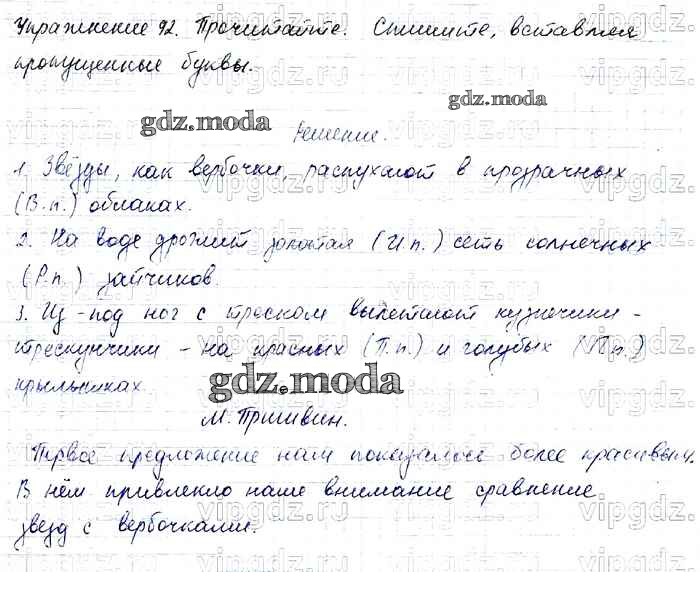 Упражнение 92. Прочитайте. Спишите, вставляя
пропущенные буквы.
gdz.moda
gdz.moda
Решение.
1. Звёзды, как вербочки, распухают в прозрачных
(В.п.) облаках.
2. На воде дрожит золотая (И.п.) сеть солнечных
(Р.п.) зайчиков.
3. Из-под ног с треском вылетают кузнечики-
трескунчики - на красных (П.п.) и голубых (П.п.)
крылышках.
gdz.moda
М. Пришвин.
Первое предложение нам показалось более красивым.
В нём привлекло наше внимание сравнение
звезд с вербочками.